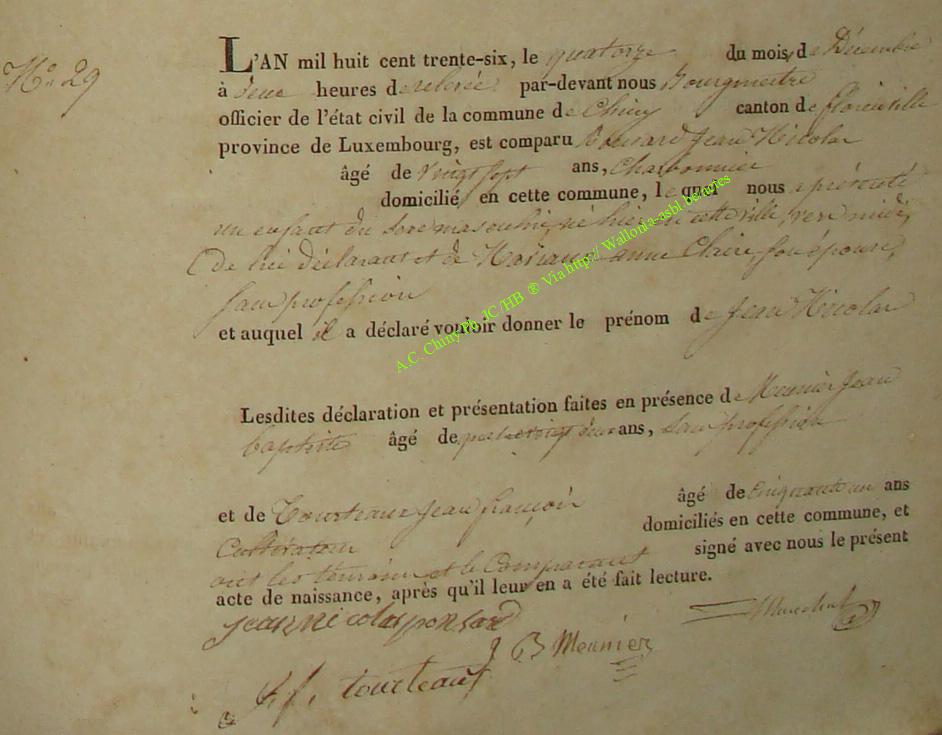 No 29
L'AN mil huit cent trente-six, le quatorze du mois de Décembre
à deux heures de relevée par-devant nous Bourgmestre
officier de l'état civil de la commune de Chiny canton de florenville
province de Luxembourg, est comparu Ponsard Jean Nicolas
âgé de vingt sept ans, Charbonnier
domicilié en cette commune, lequel nous a présenté
un enfant du sexe masculin, né hier en cette ville, vers midi,
de lui déclarant et de Marianne Claire son épouse,
sans profession
et auquel il a déclaré vouloir donner le prénom de Jean Nicolas
Lesdites déclaration et présentation faites en présence de Meunier Jean
baptiste âgé de quatre vingt deux ans, sans profession
et de Tourteaux Jean françois âgé de Cinquante un ans
Cultivateur domiciliés en cette commune, et
ont les témoins et le Comparant signé avec nous le présent
acte de naissance, après qu'il leur en a été fait lecture.
jean nicolas ponsard
Marechal
J B Meunier
J. f. tourteaux
A.C. Chiny Ph. JC/HB ® Via http:// Wallonia-asbl.be/actes